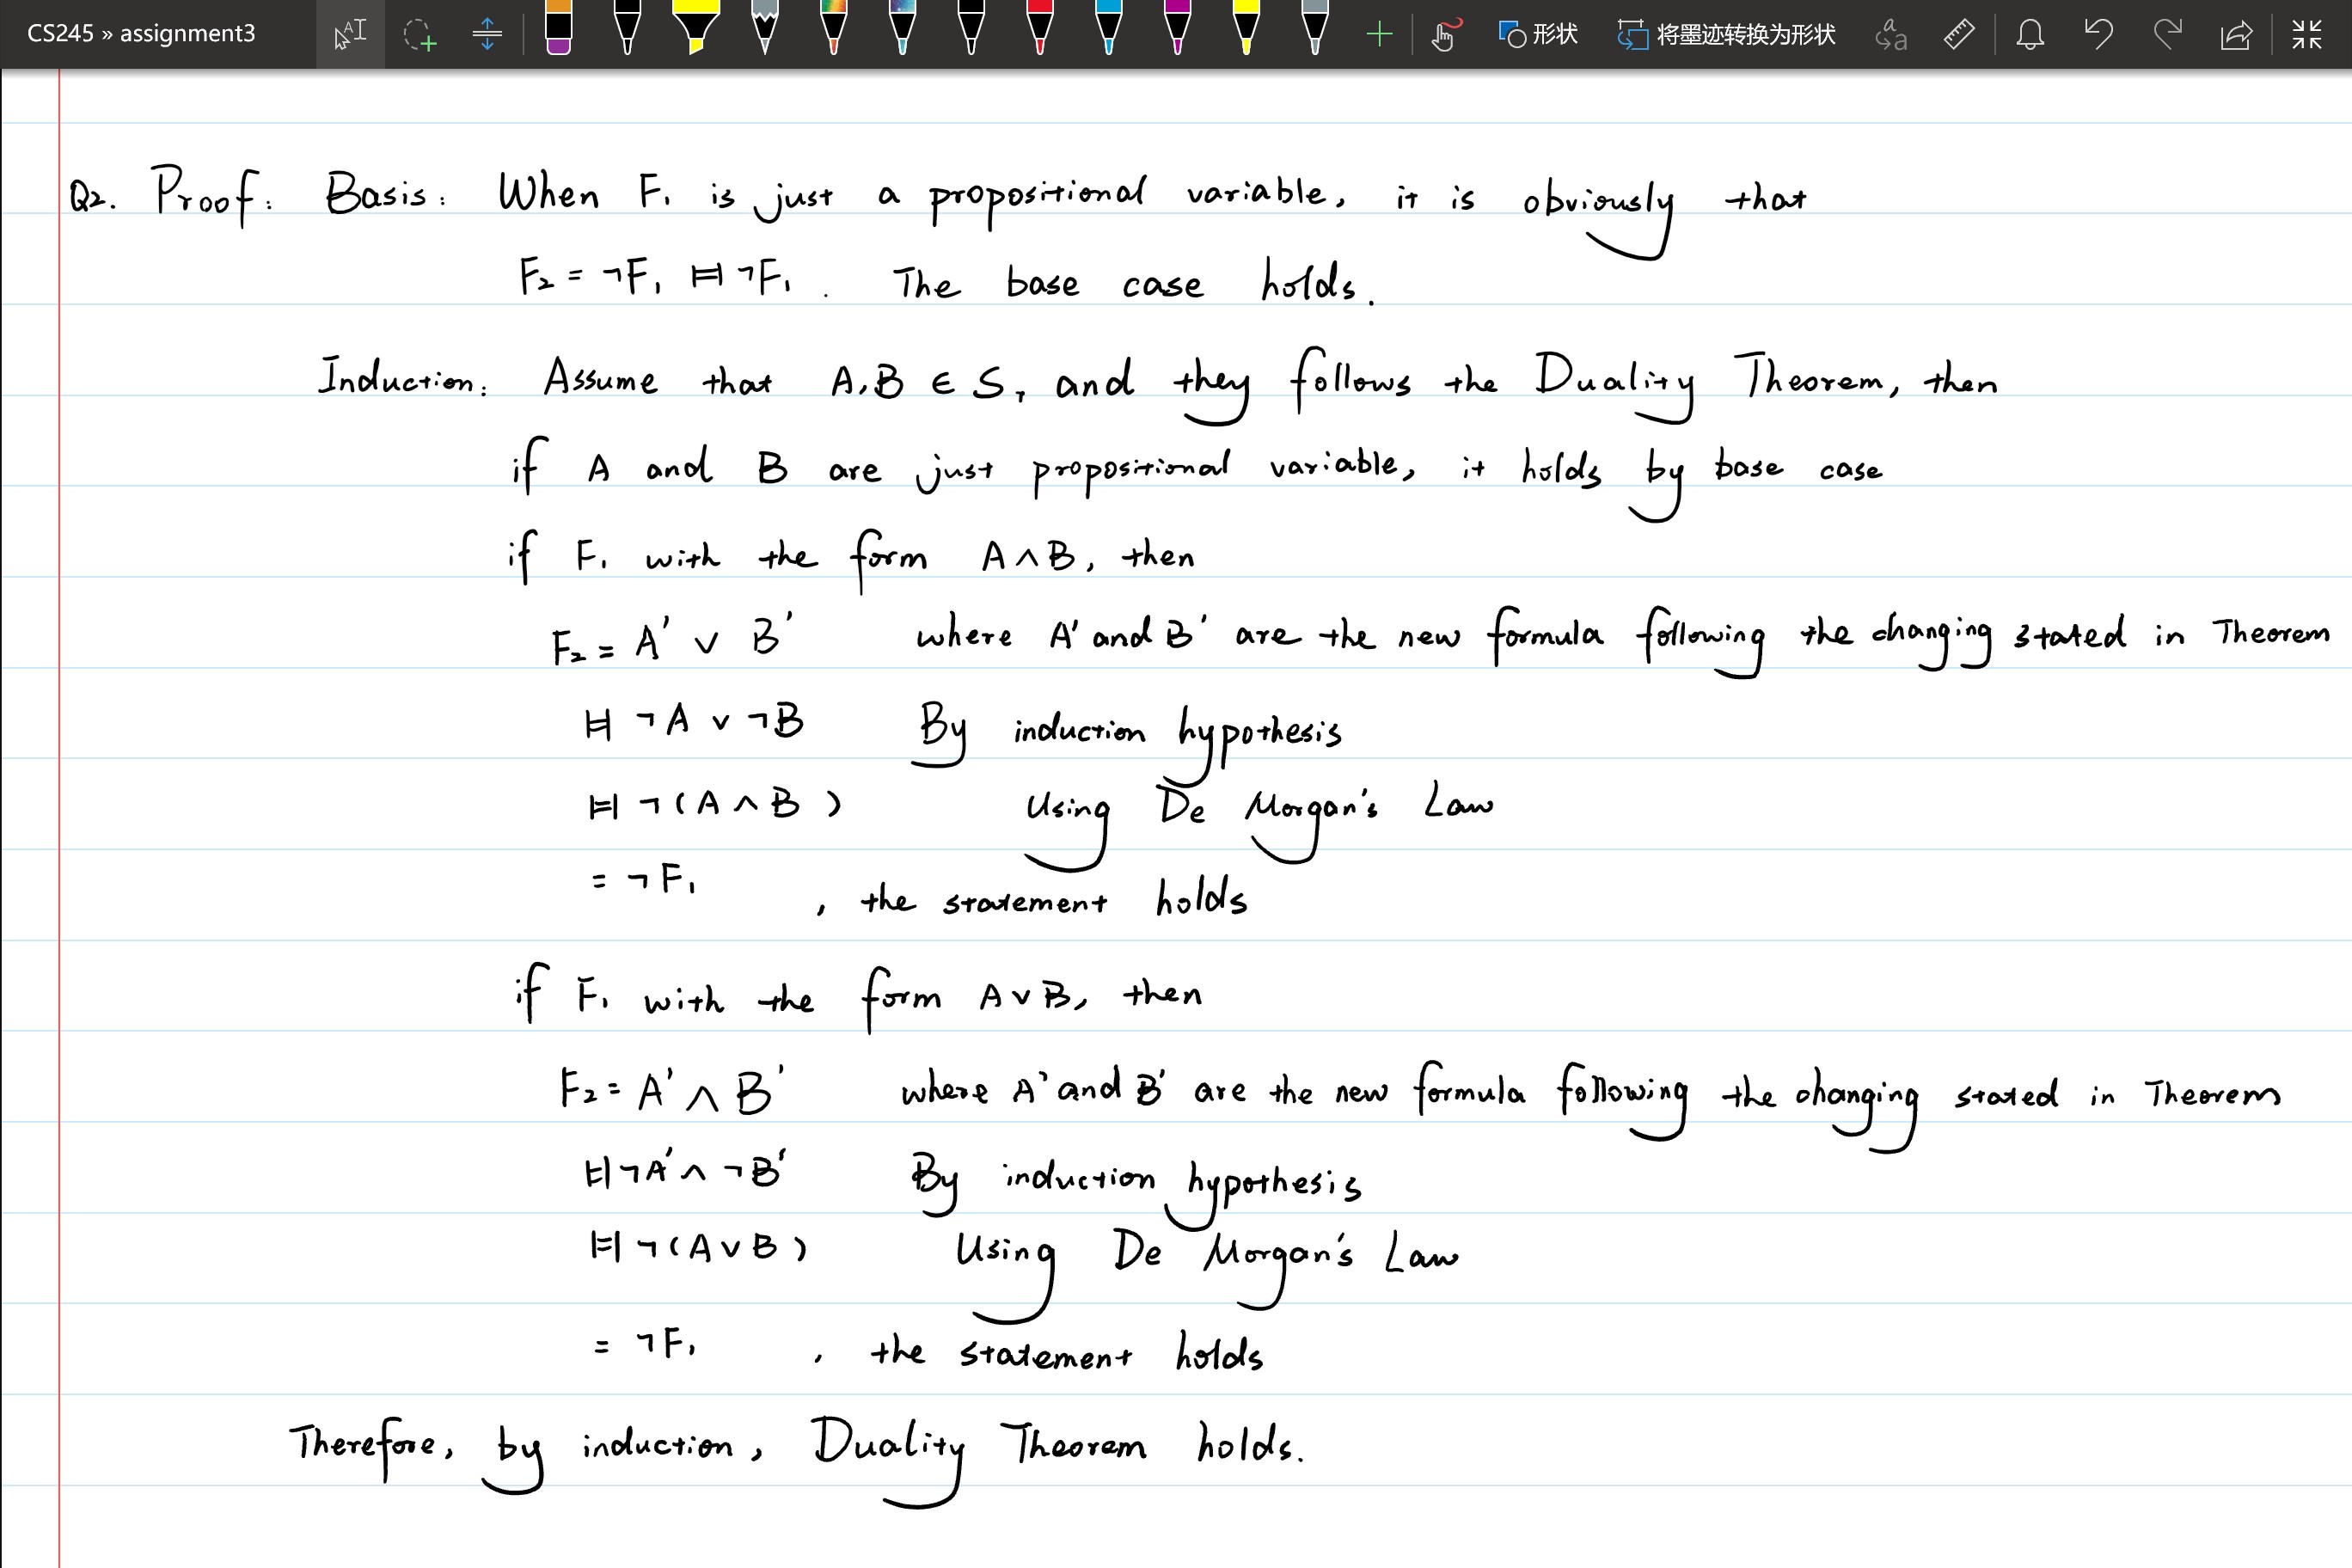 CS245 » assignment3
形状
将墨迹转换为形状
Q2. Proof: Basis: When F₁ is just a propositional variable, it is obviously that
F₂ = ¬F₁ ⊨⊣ ¬F₁. The base case holds.
Induction: Assume that A, B ∈ S, and they follows the Duality Theorem, then
if A and B are just propositional variable, it holds by base case
if F₁ with the form A∧B, then
F₂ = A' ∨ B' where A' and B' are the new formula following the changing stated in Theorem
⊨⊣ ¬A ∨ ¬B By induction hypothesis
⊨⊣ ¬(A ∧ B) Using De Morgan's Law
= ¬F₁
, the statement holds
if F₁ with the form A∨B, then
F₂ = A' ∧ B' where A' and B' are the new formula following the changing stated in Theorem
⊨⊣ ¬A' ∧ ¬B' By induction hypothesis
⊨⊣ ¬(A ∨ B) Using De Morgan's Law
= ¬F₁ , the statement holds
Therefore, by induction, Duality Theorem holds.